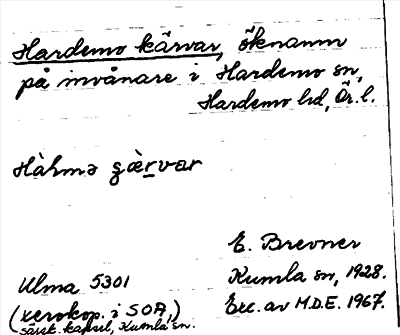 Hardemo kärvar, öknamn
på invånare i Hardemo sn,
Hardemo hd, Ör. l.
Hàhmə gæ̀rvar
E. Brevner
Ulma 5301
Kumla sn, 1928.
(xerokop. i SOA,)
Exc. av M.D.E. 1967.
särsk. kapsel, Kumla sn.